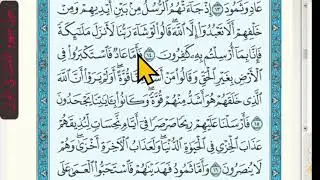 عَادٍ وَثَمُودَ ١٣ إِذْ جَآءَتْهُمُ ٱلرُّسُلُ مِنۢ بَيْنِ أَيْدِيهِمْ وَمِنْ
خَلْفِهِمْ أَلَّا تَعْبُدُوٓا۟ إِلَّا ٱللَّهَ قَالُوا۟ لَوْ شَآءَ رَبُّنَا لَأَنزَلَ مَلَـٰٓئِكَةً
فَإِنَّا بِمَآ أُرْسِلْتُم بِهِۦ كَـٰفِرُونَ ١٤ فَأَمَّا عَادٌ فَٱسْتَكْبَرُوا۟ فِى
ٱلْأَرْضِ بِغَيْرِ ٱلْحَقِّ وَقَالُوا۟ مَنْ أَشَدُّ مِنَّا قُوَّةً أَوَلَمْ يَرَوْا۟ أَنَّ ٱللَّهَ
ٱلَّذِى خَلَقَهُمْ هُوَ أَشَدُّ مِنْهُمْ قُوَّةً وَكَانُوا۟ بِـَٔايَـٰتِنَا يَجْحَدُونَ
١٥ فَأَرْسَلْنَا عَلَيْهِمْ رِيحًا صَرْصَرًا فِىٓ أَيَّامٍ نَّحِسَاتٍ لِّنُذِيقَهُمْ
عَذَابَ ٱلْخِزْىِ فِى ٱلْحَيَوٰةِ ٱلدُّنْيَا وَلَعَذَابُ ٱلْـَٔاخِرَةِ أَخْزَىٰ وَهُمْ
لَا يُنصَرُونَ ١٦ وَأَمَّا ثَمُودُ فَهَدَيْنَـٰهُمْ فَٱسْتَحَبُّوا۟ ٱلْعَمَىٰ عَلَى